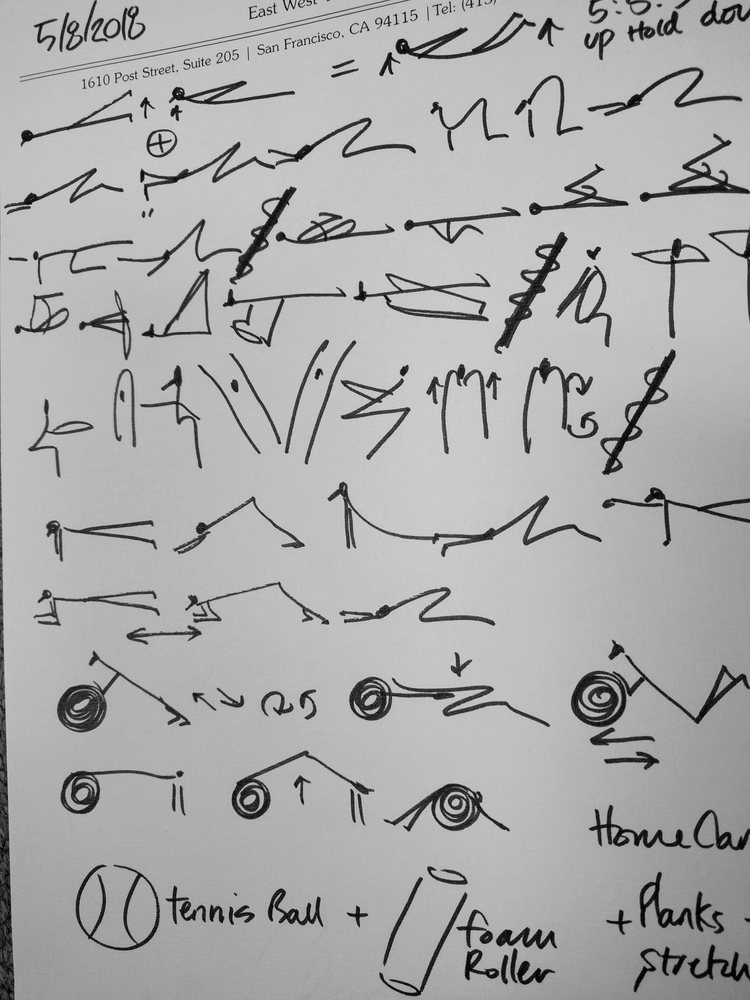 5/8/2018
East West
1610 Post Street, Suite 205 | San Francisco, CA 94115 | Tel: (415)
5:5:
up Hold down
Home Car
tennis Ball + foam Roller
+ Planks
stretch